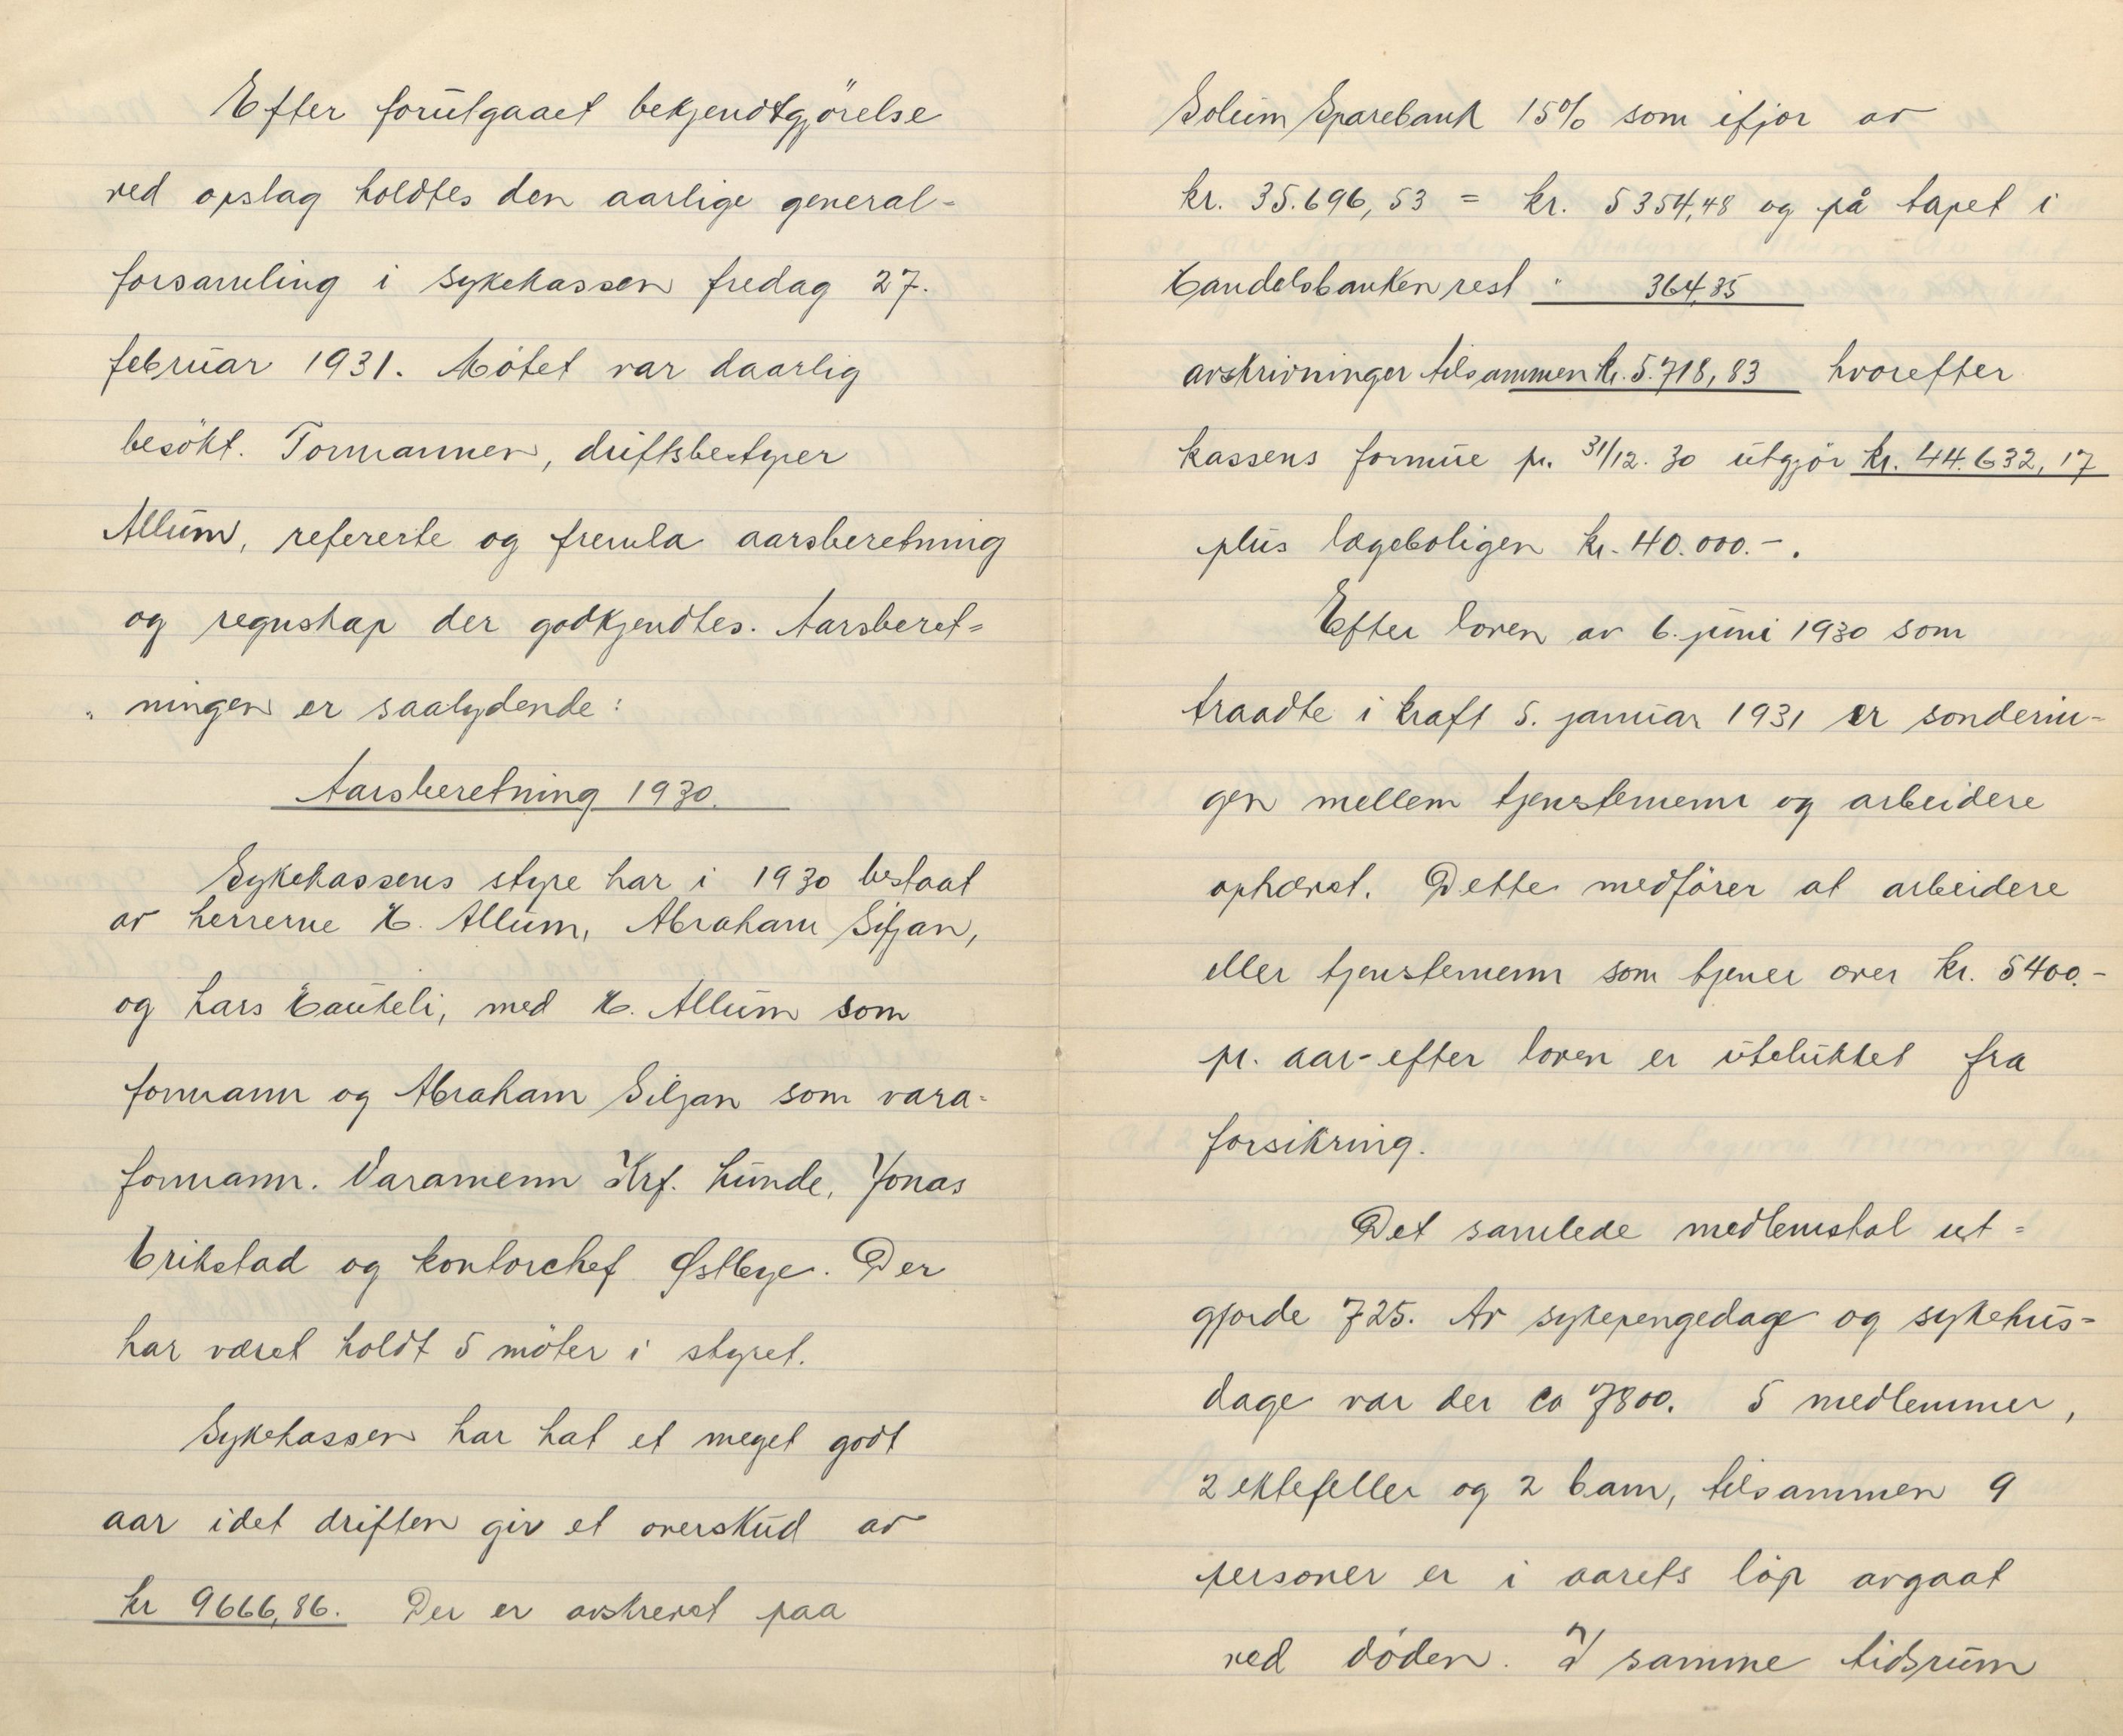 Efter forutgaaet bekjendtgjörelse
ved opslag holdtes den aarlige general-
forsamling i sykekassen fredag 27.
februar 1931. Mötet var daarlig
besökt. Formannen, driftsbestyrer
Allum, refererte og fremla aarsberetning
og regnskap der godkjendtes. Aarsberet=
ningen er saalydende:
Aarsberetning 1930.
Sykekassens styre har i 1930 bestaat
av herrerne H. Allum, Abraham Siljan,
og Lars Haukeli, med H. Allum som
formann og Abraham Siljan som vara=
formann. Varamenn Krf. Lunde, Jonas
Erikstad og kontorchef Østbye. Der
har været holdt 5 möter i styret.
Sykekassen har hat et meget godt
aar idet driften gir et overskud av
kr 9666,86. Der er avskrevet paa
Solum Sparebank 15% som ifjor av
kr. 35.696,53 = kr. 5354,48 og på tapet i
Handelsbanken rest " 364,35
avskrivninger tilsammen kr. 5.718,83 hvorefter
kassens formue pr. 31/12. 30 utgjör kr. 44.632,17
plus lægeboligen kr. 40.000.-.
Efter loven av 6. juni 1930 som
traadte i kraft 5. januar 1931 er sonderin-
gen mellem tjenstemenn og arbeidere
ophævet. Dette medförer at arbeidere
eller tjenstemenn som tjener over kr. 5400.-
pr. aar- efter loven er utelukket fra
forsikring.
Det samlede medlemstal ut=
gjorde 725. Av sykepengedage og sykehus=
dage var der ca 7800. 5 medlemmer,
2 ektefeller og 2 barn, tilsammen 9
personer er i aarets löp avgaat
ved döden. I samme tidsrum